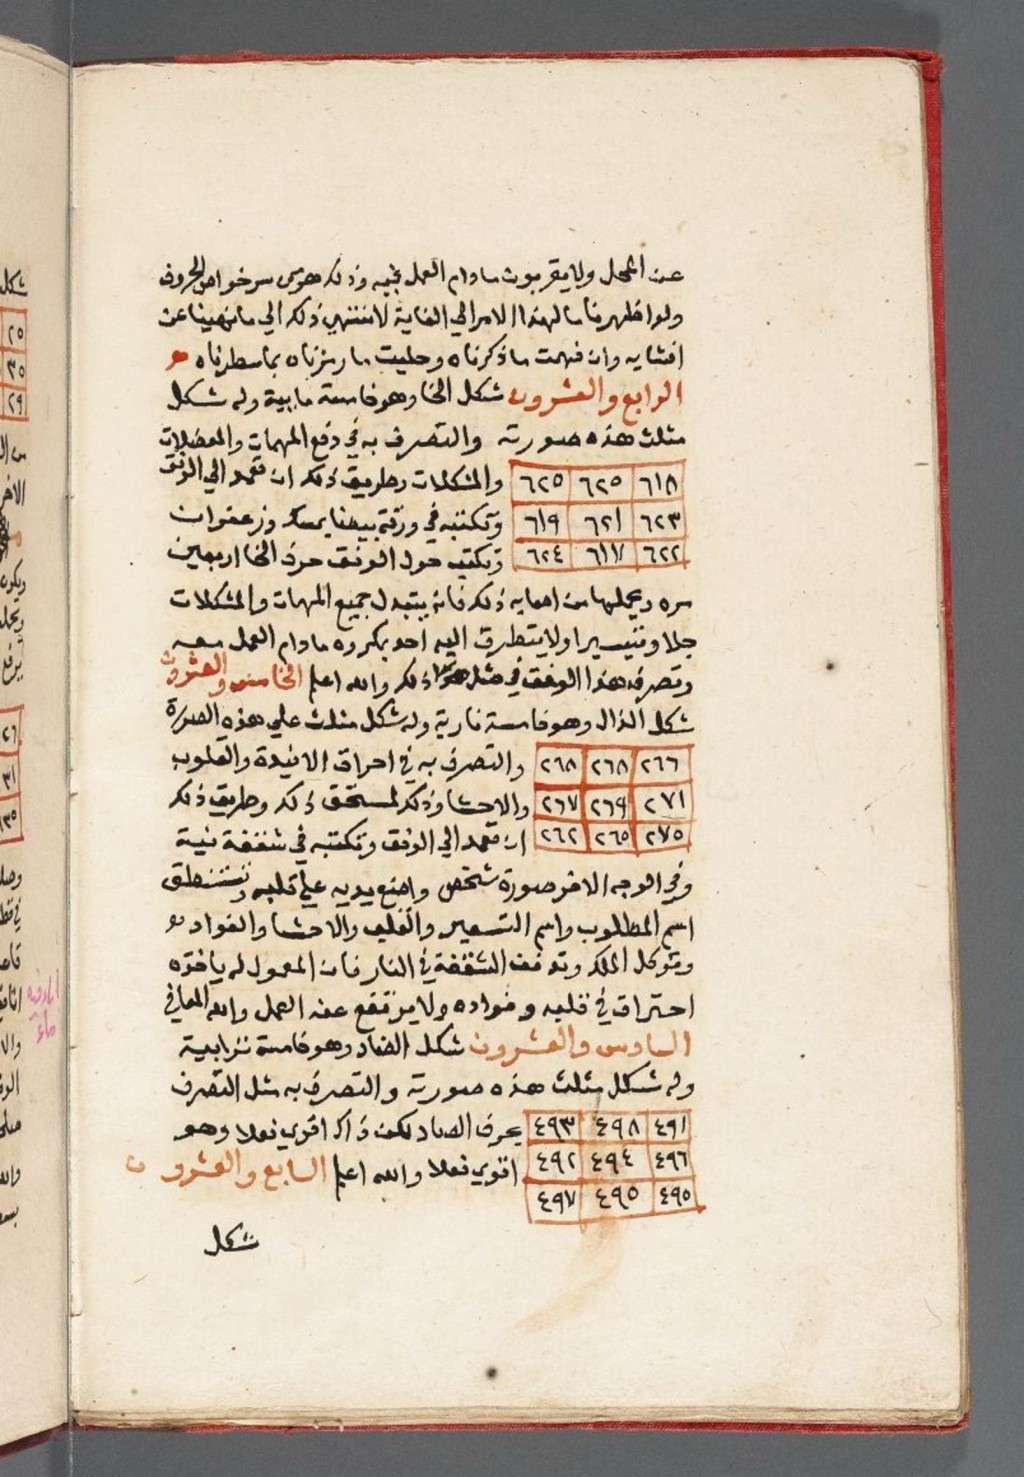 عن المحل ولا يقربون مادام العمل فيه وذلك هو من سر خواص الحروف
ولو اظهرنا ما لهذا الامر الي الغاية لا ننتهي ذلك الي ما نهينا عن
افشايه وان فهمت ما ذكرناه وحليت ما رمزناه بما سطرناه
الرابع والعشرون شكل الخا وهو خامسة مايية وله شكل
مثلث هذه صورته والتصرف به في دفع المهمات والمعضلات
٦١٨ ٦٢٥ ٦٢٥ والمشكلات وطريق ذلك ان تعمد الي الوفق
٦٢٣ ٦٢١ ٦١٩ وتكتبه في ورقة بيضا بمسك وزعفران
٦٢٢ ٦١٧ ٦٢٤ وتكتب حول الوفق حرف الخا اربعين
مره ويحملها من اهمايه ذلك فانه يتبدل جميع المهمات والمشكلات
حلا وتيسيرا ولا يتطرق اليه احد بمكروه مادام العمل معه
وتصرف هذا الوفق في مثل ذلك والله اعلم الخامس والعشرون
شكل الذال وهو خامسة نارية وله شكل مثلث علي هذه الصورة
٢٦٦ ٢٦٨ ٢٦٨ والتصرف به في احراق الافيدة والقلوب
٢٧١ ٢٦٩ ٢٦٧ والاحشا وذلك لمستحق ذلك وطريق ذلك
٢٧٥ ٢٦٥ ٢٦٢ ان تعمد الي الوفق وتكتبه في شقفة نية
وفي الوجه الاخر صورة شخص واضع يديه علي قلبه وتستنطق
اسم المطلوب واسم التسعير والقلب والاحشا والفواد
وتوكل الملك وتدفن الشقفة في النار فان المعمول له ياخذه
احتراق في قلبه وفواده ولا يرتفع عنه العمل والله المعافي
السادس والعشرون شكل الضاد وهو خامسة ترابية
وله شكل مثلث هذه صورته والتصرف به مثل التصرف
٤٩١ ٤٩٨ ٤٩٣ بحرف الصاد لكن ذاك اقوي فعلا وهو
٤٩٦ ٤٩٤ ٤٩٢ اقوي فعلا والله اعلم السابع والعشرون
٤٩٥ ٤٩٥ ٤٩٧
شكل